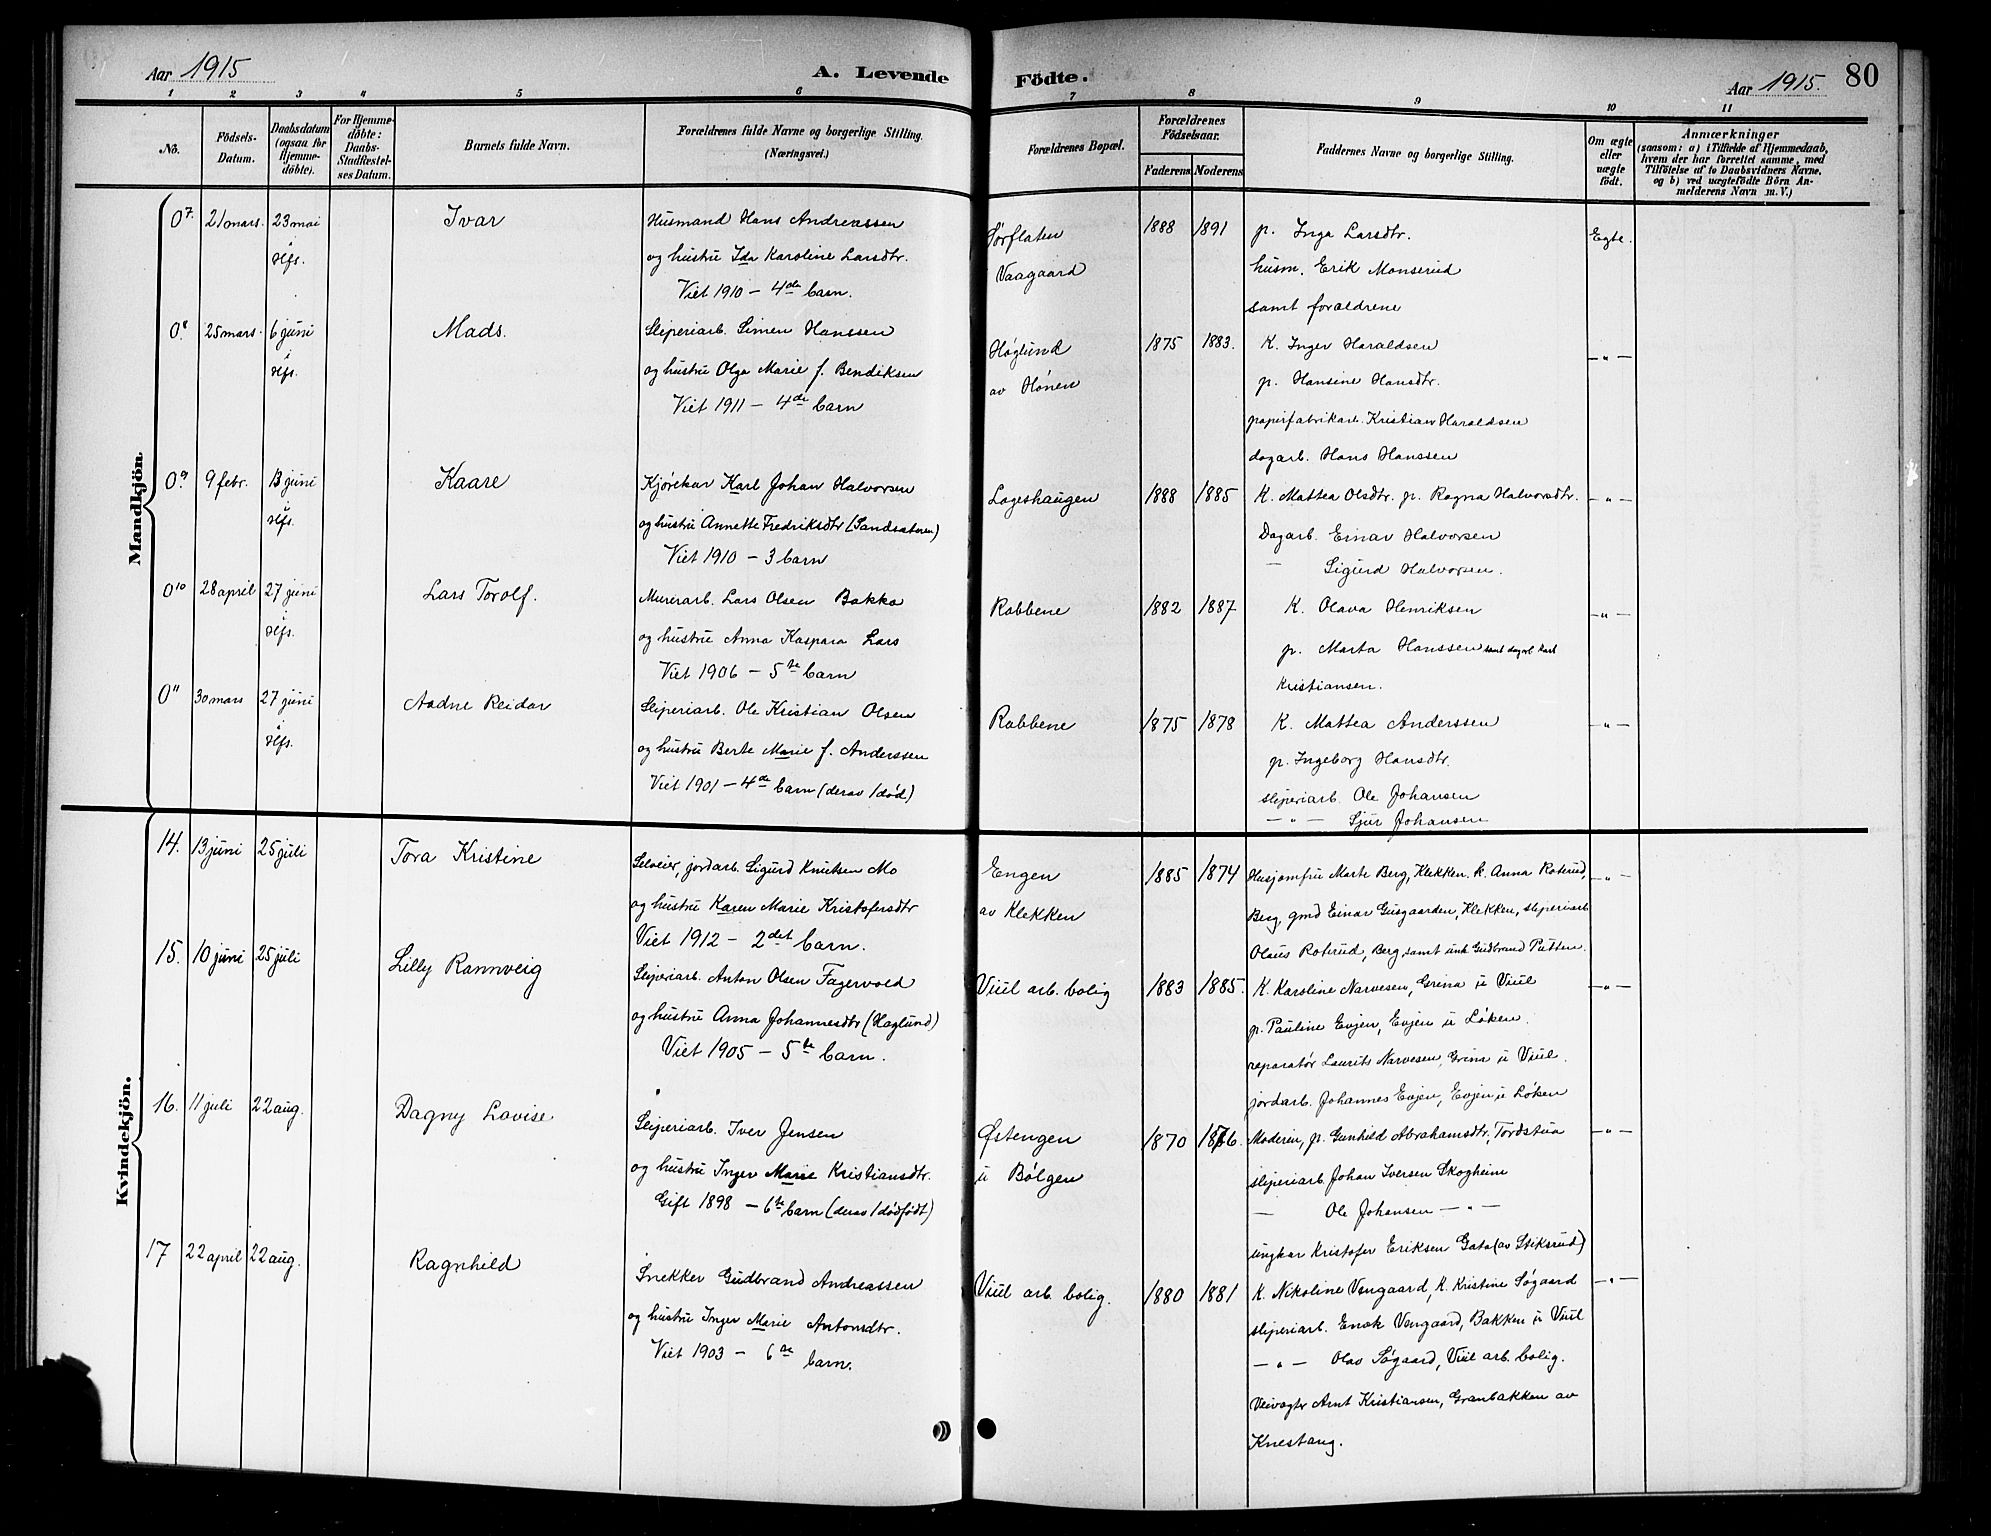 Aar 1915
A. Levende Födte.
Aar 1915.
80
1 2 3 4 5 6 7 8 9 10 11
No.
Födsels-Datum.
Daabsdatum (ogsaa for Hjemme-döbte).
For Hjemme-döbte: Daabs-Stadfæstel-ses Datum.
Barnets fulde Navn.
Forældrenes fulde Navne og borgerlige Stilling.
(Næringsvei.)
Forældrenes Bopæl.
Forældrenes Födselsaar.
Faderens Moderens
Faddernes Navne og borgerlige Stilling.
Om ægte eller uægte födt.
Anmærkninger
(saasom: a) i Tilfælde af Hjemmedaab,
hvem der har forrettet samme, med
Tilföielse af to Daabsvidners Navne,
og b) ved uægtefödte Börn An-
melderens Navn m. V.)
Mandkjön.
07. 21 mars. 23 mai i Hfs. Ivar
Husmand Hans Andreassen
og hustru Ida Karoline Larsdtr.
Viet 1910 - 4de barn.
Sørflaten
Vaagaard
1888 1891
p. Inga Larsdtr.
husm. Erik Monserud
samt forældrene
Egte.
08. 25 mars. 6 juni i Hfs. Mads.
Sliperiarb. Simen Hanssen
og hustru Olga Marie f. Bendiksen
Viet 1911 - 4de barn
Høglund
av Hønen
1875 1883.
K. Inger Haraldsen
p. Hansine Hansdtr.
papirfabrikarb. Kristian Haraldsen
dagarb. Hans Hanssen
-"-
09. 9 febr. 13 juni i Hfs. Kaare
Kjørekar Karl Johan Halvorsen
og hustru Annette Fredriksdtr (Sandsæteren)
Viet 1910 - 3 barn
Lageshaugen
1888 1885
K. Mattea Olsdtr. p. Ragna Halvorsdtr.
Dagarb. Einar Halvorsen
- Sigurd Halvorsen.
-"-
010 28 april 27 juni i Hfs. Lars Torolf.
Murerarb. Lars Olsen Bakka
og hustru Anna Kaspara Lars
Viet 1906 - 5te barn
Rabbene
1882 1887
K. Olava Henriksen
p. Marta Hanssen samt dagarb Karl
Kristiansen.
-"-
011 30 mars 27 juni i Hfs. Aadne Reidar
Sliperiarb. Ole Kristian Olsen
og hustru Berte Marie f. Anderssen
Viet 1901 - 4de barn (derav 1 død)
Rabbene
1875 1878
K. Mattea Anderssen
p. Ingeborg Hansdtr.
sliperiarb. Ole Johansen
-"- Sjur Johansen
-"-
Kvindekjön.
14. 13 juni 25 juli Tora Kristine
Selveier, jordarb. Sigurd Knutsen Mo
og hustru Karen Marie Kristofersdtr
Viet 1912 - 2det barn.
Engen
av Klekken
1885 1874
Husjomfru Marte Berg, Klekken. k. Anna Roterud,
Berg, gmd Einar Gusgaarden, Klekken, sliperiarb
Olaus Roterud, Berg samt unk Gudbrand Putten.
-"-
15. 10 juni 25 juli Lilly Rannveig
Sliperiarb. Anton Olsen Fagervold
og hustru Anna Johannesdtr (Haglund)
Viet 1905 - 5te barn.
Viul arb. bolig
1883 1885.
K. Karoline Narvesen, Grina u Viul
p. Pauline Evjen, Evjen u Løken.
reparatør Laurits Narvesen, Grina u Viul.
jordarb. Johannes Evjen, Evjen u Løken
-"-
16. 11 juli 22 aug. Dagny Lovise
Sliperiarb. Iver Jensen
og hustru Inger Marie Kristiansdtr.
Gift 1898 - 6te barn (derav 1 dødfødt)
Østengen
u Bølgen
1870 1876.
Moderen, p. Gunhild Abrahamsdtr, Tordstua
sliperiarb. Johan Iversen Skogheim
- Ole Johansen -"-
ungkar Kristofer Eriksen Gata (av Stiksrud)
-"-
17 22 april 22 aug. Ragnhild
Snekker Gudbrand Andreassen
og hustru Inger Marie Antonsdtr.
Viet 1903 - 6te barn.
Viul arb. bolig.
1880 1881
K. Nikoline Vengaard, K. Kristine Søgaard
sliperiarb. Enok Vengaard, Bakken u Viul
-"- Olav Søgaard, Viul arb. bolig.
Veivogtr Arnt Kristiansen, Granbakken av
Knestang.
-"-